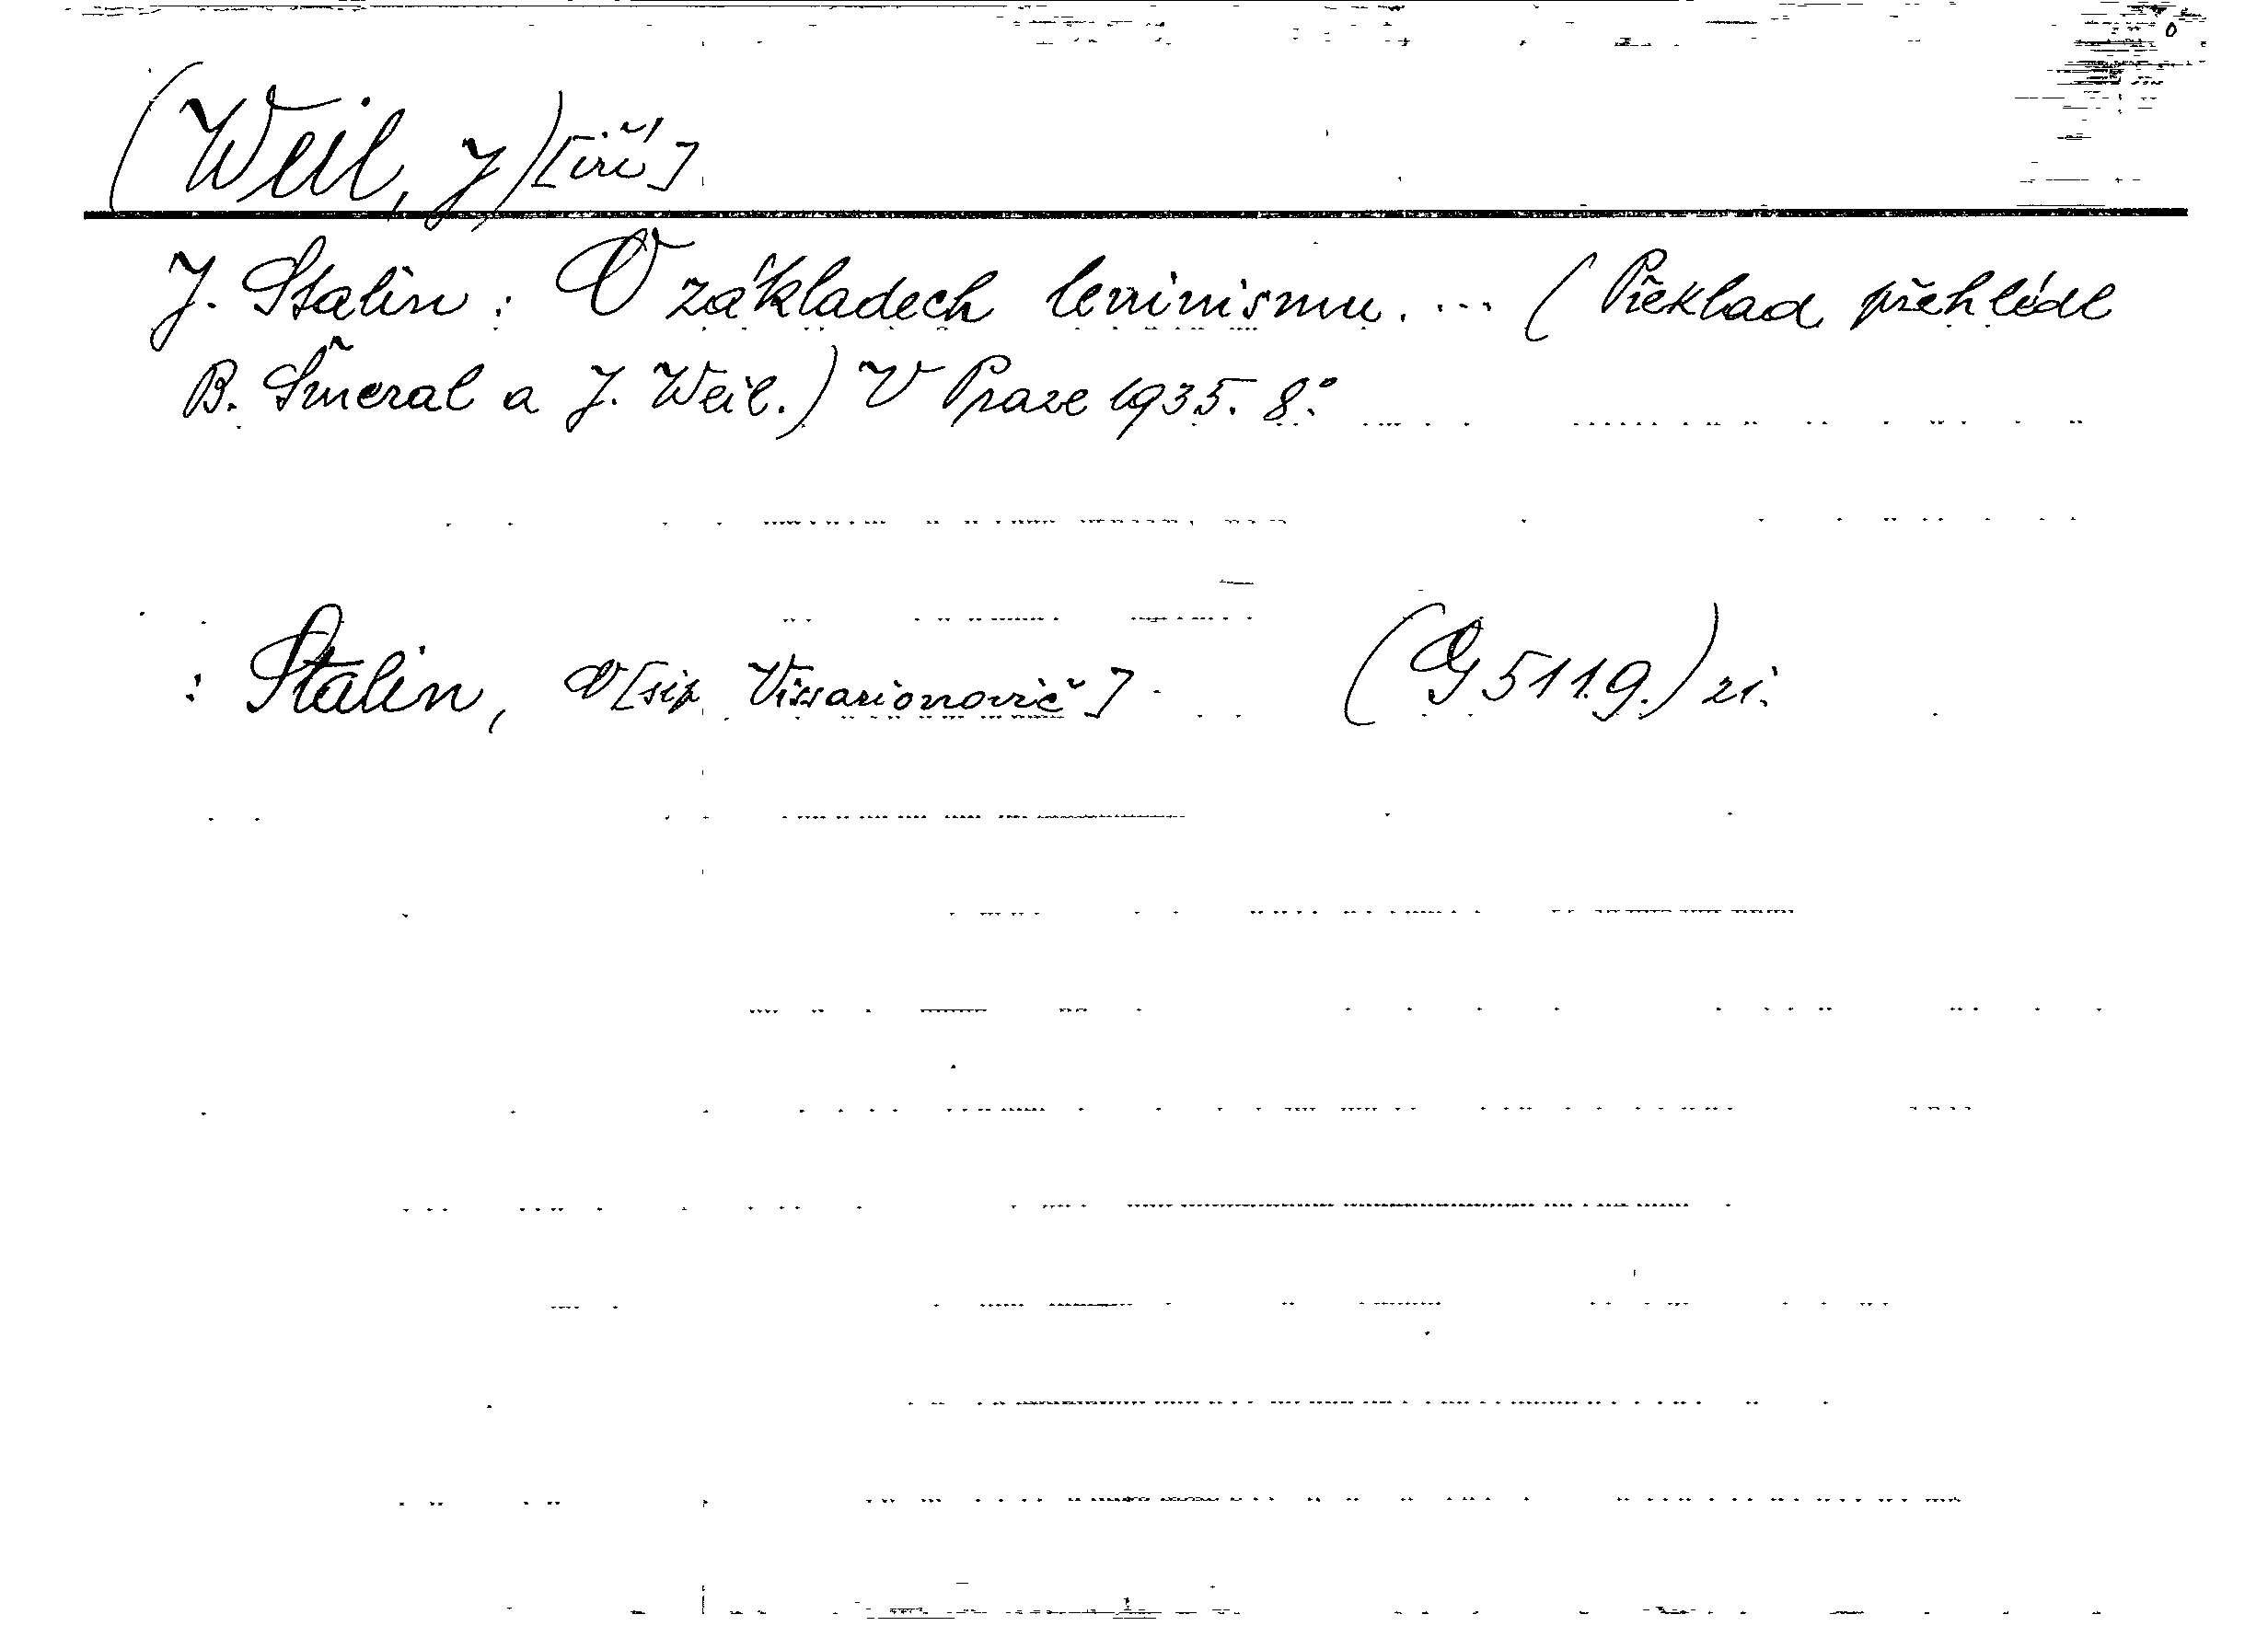 (Weil, J)[iří]
J. Stalin: O základech leninismu. ... (Překlad přehlédl
B. Šmeral a J. Weil.) V Praze 1935. 8°.
: Stalin, O[sip Vissarionovič]. (G 5119.) zi.